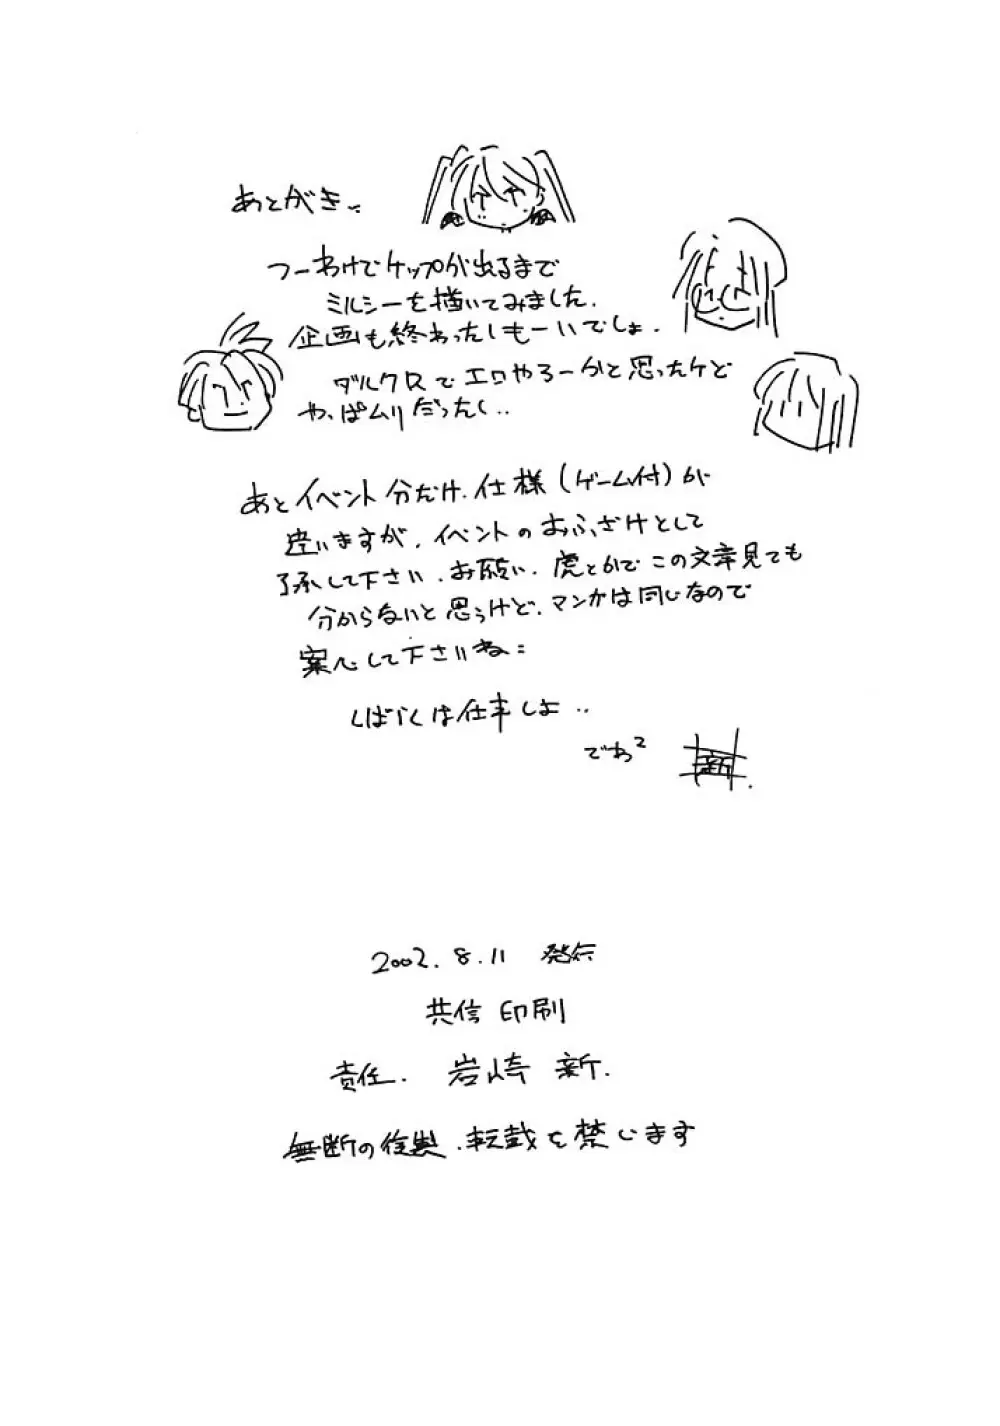 あとがき..
つーわけでケップが出るまで
ミルシーを描いてみました.
企画も終わったしもーいいでしょ.
ダルクロでエロやろーかと思ったケど
やっぱムリだったし..
あとイベント分だけ.仕様(ゲーム付)が
違いますが.イベントのおふざけとして
了承して下さい.お願い.虎とかでこの文章見ても
分からないと思うけど.マンガは同じなので
案心して下さいね
しばらくは仕事しよ..
でわ2
新.
2002.8.11 発行
共信印刷
責任. 岩崎 新.
無断の複製.転載を禁じます